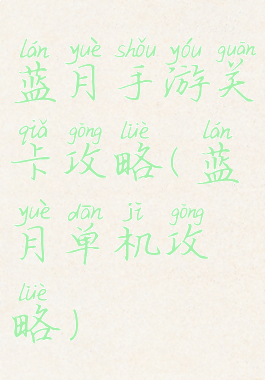 lán yuè shǒu yóu guān
蓝月手游关
qiǎ gōng lüè lán
卡攻略(蓝
yuè dān jī gōng
月单机攻
lüè
略)